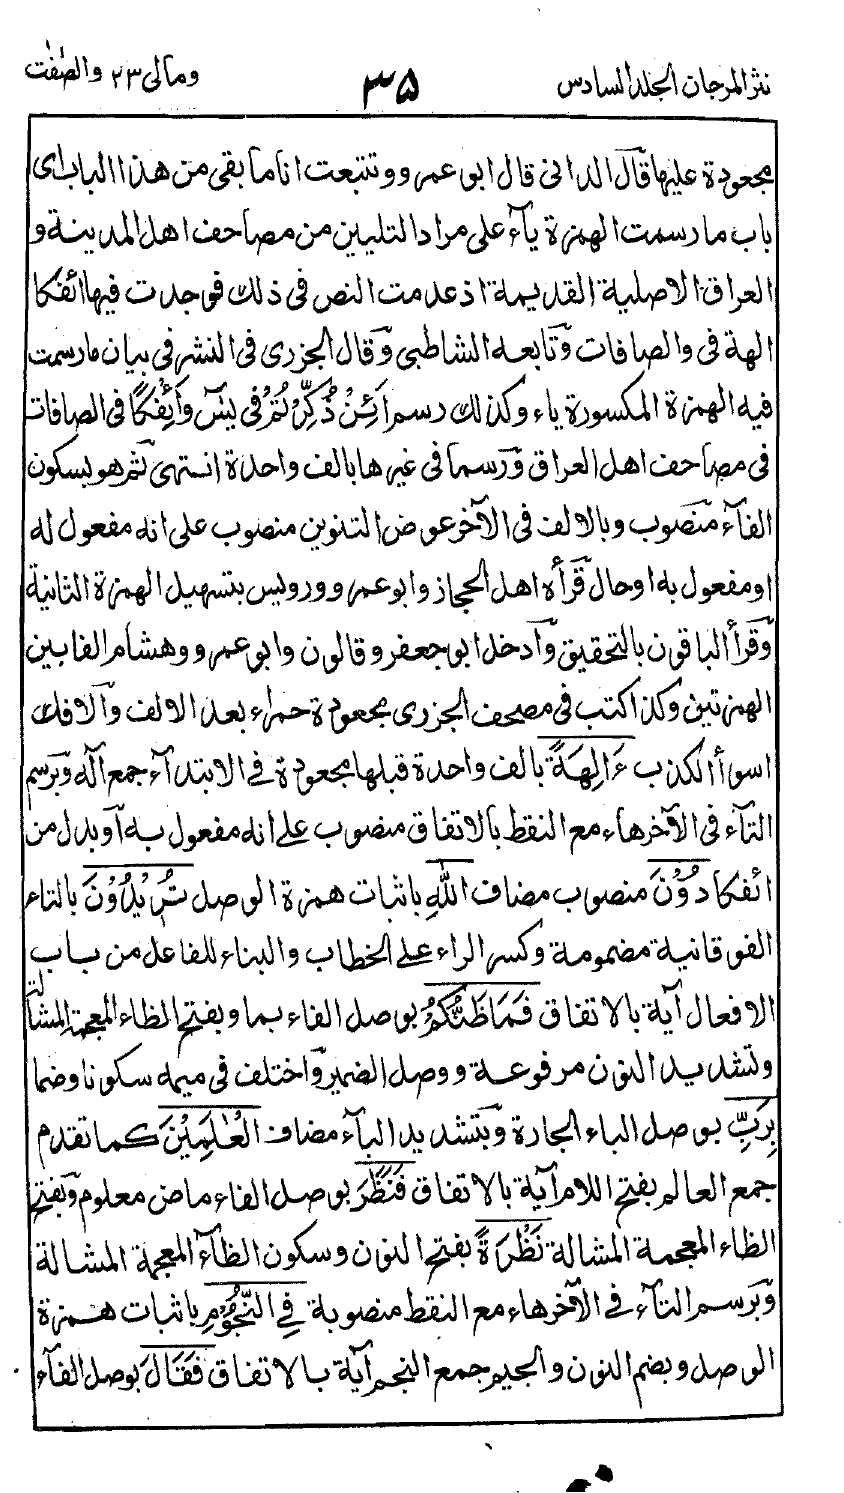 نثر المرجان الجلد السادس
۳۵
ومالی ۲۳ والصّٰفّٰت
مجعودة عليها قال الدانی قال ابو عمرو وتتبعت انا ما بقی من هذا الباب ای
باب ما رسمت الهمزة ياء علی مراد التليين من مصاحف اهل المدينة و
العراق الاصلية القديمة اذ عدمت النص فی ذلك فوجدت فيها ائفكا
الهة فی والصافات وتابعه الشاطبی وقال الجزری فی النشر فی بيان ما رسمت
فيه الهمزة المكسورة ياء وكذلك رسم اَئِنْ ذُكِّرْتُمْ فی يسٓ وَاَئِفْكًا فی الصافات
فی مصاحف اهل العراق ورسما فی غيرها بالف واحدة انتهی ثم هو بسكون
الفاء منصوب وبالالف فی الآخر عوض التنوين منصوب علی انه مفعول له
او مفعول به او حال قرأه اهل الحجاز وابو عمرو ورويس بتسهيل الهمزة الثانية
وقرأ الباقون بالتحقيق وادخل ابو جعفر وقالون وابو عمرو وهشام الفا بين
الهمزتين وكذا كتب فی مصحف الجزری مجعودة حمراء بعد الالف والافك
اسوأ الكذب ءَالِهَةً بالف واحدة قبلها مجعودة فی الابتداء جمع اله وبرسم
التاء فی الآخر هاء مع النقط بالاتفاق منصوب علی انه مفعول به او بدل من
ائفكا دُوْنَ منصوب مضاف اللّٰهِ باثبات همزة الوصل تُرِيْدُوْنَ بالتاء
الفوقانية مضمومة وكسر الراء علی الخطاب والبناء للفاعل من باب
الافعال آية بالاتفاق فَمَا ظَنُّكُمْ بوصل الفاء بما وبفتح الظاء المعجمة المشالة
وتشديد النون مرفوعة ووصل الضمير واختلف فی ميمه سكونا وضما
بِرَبِّ بوصل الباء الجارة وبتشديد الباء مضاف الْعٰلَمِيْنَ كما تقدم
جمع العالم بفتح اللام آية بالاتفاق فَنَظَرَ بوصل الفاء ماض معلوم وبفتح
الظاء المعجمة المشالة نَظْرَةً بفتح النون وسكون الظاء المعجمة المشالة
وبرسم التاء فی الآخر هاء مع النقط منصوبة فِي النُّجُوْمِ باثبات همزة
الوصل وبضم النون والجيم جمع النجم آية بالاتفاق فَقَالَ بوصل الفاء